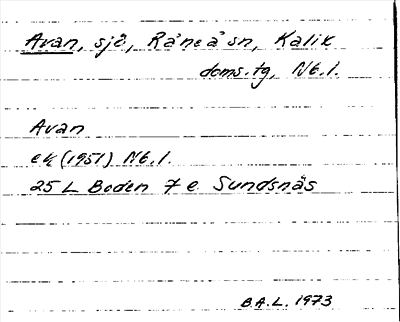 Avan, sjö, Råneå sn, Kalix
doms. tg, Nb.l.
Avan
ek (1951) Nb.l.
25 L Boden 7 e Sundsnäs
B.A.L. 1973